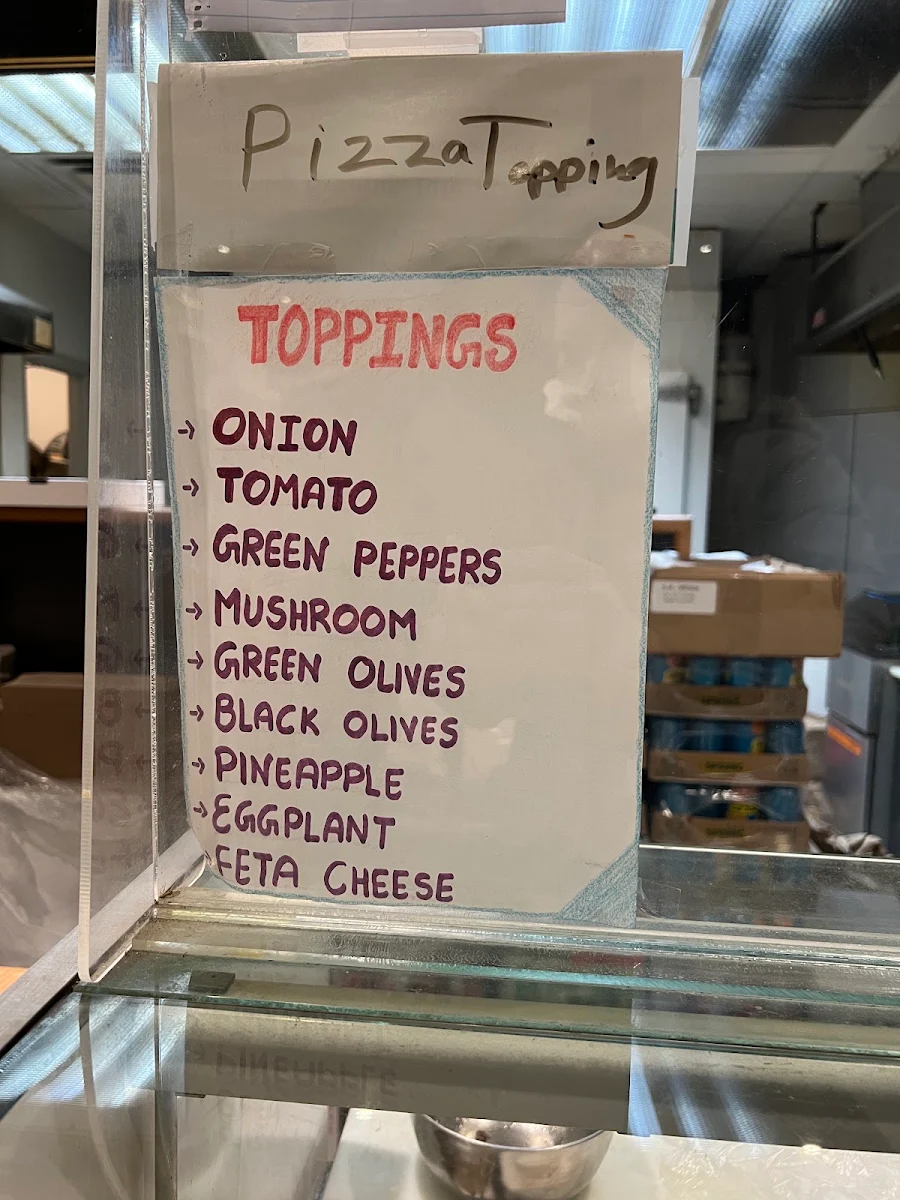 Pizza Topping
TOPPINGS
→ ONION
→ TOMATO
→ GREEN PEPPERS
→ MUSHROOM
→ GREEN OLIVES
→ BLACK OLIVES
→ PINEAPPLE
→ EGGPLANT
FETA CHEESE